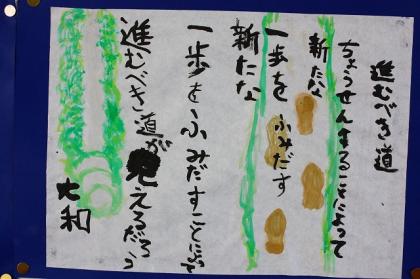 進むべき道
ちょうせんすることによって
新たな
一歩をふみだす
新たな
一歩をふみだすことによって
進むべき道が見えるだろう
大和